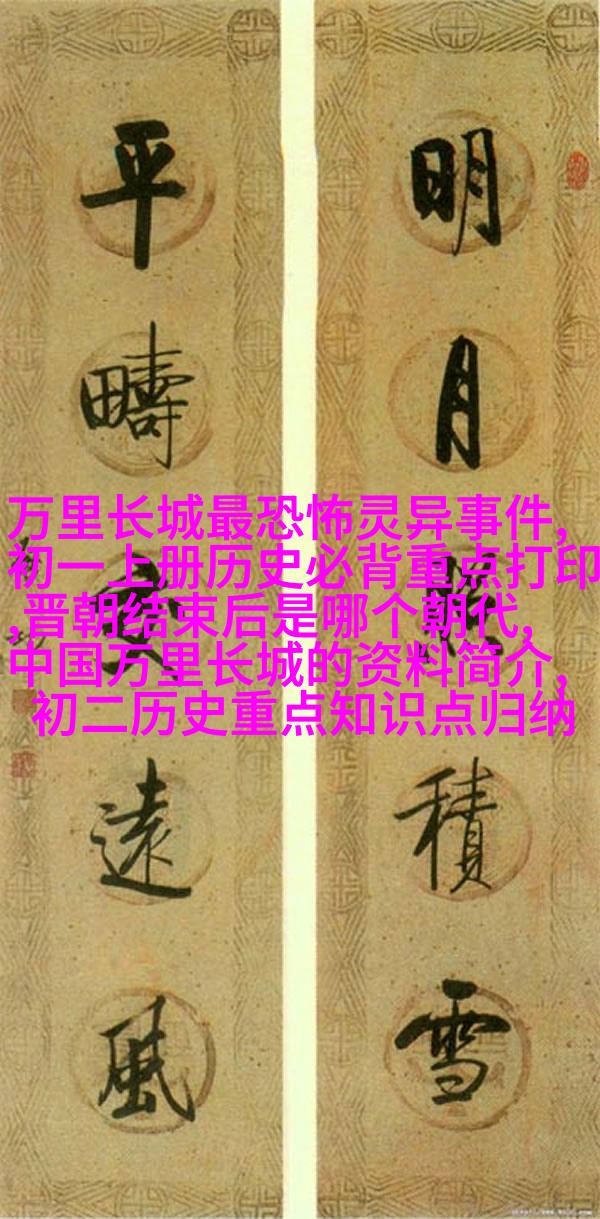 明月積雪
平疇交遠風
万里长城最恐怖灵异事件,
初一上册历史必背重点打印
,晋朝结束后是哪个朝代,
中国万里长城的资料简介,
初二历史重点知识点归纳